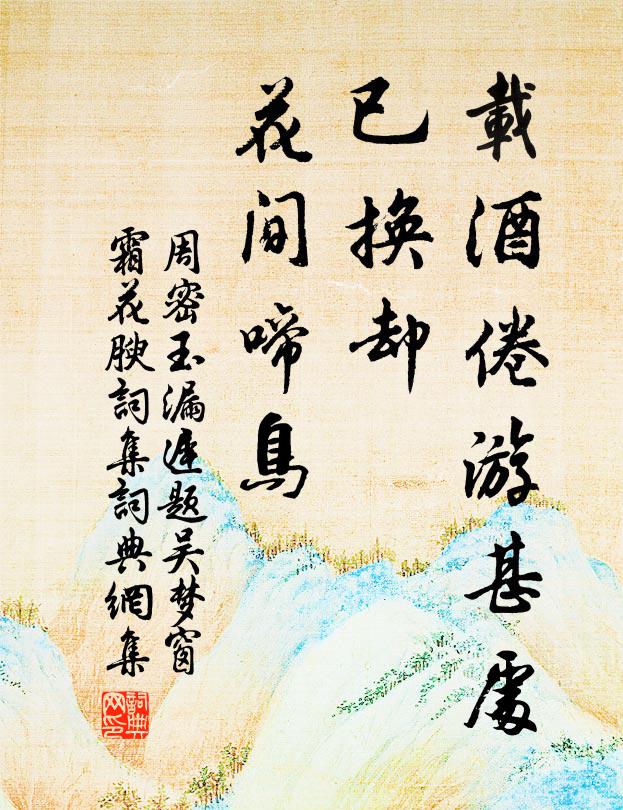 載酒倦游甚處
已換却
花間啼鳥
周密玉漏遲题吴梦窗
霜花腴詞集詞典網集
詞典
网印